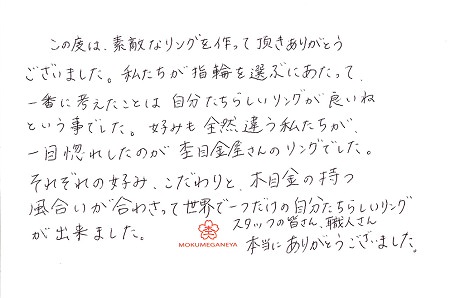 この度は、素敵なリングを作って頂きありがとう
ございました。私たちが指輪を選ぶにあたって、
一番に考えたことは自分たちらしいリングが良いね
という事でした。好みも全然違う私たちが、
一目惚れしたのが杢目金屋さんのリングでした。
それぞれの好み、こだわりと、木目金の持つ
風合いが合わさって世界で一つだけの自分たちらしいリング
が出来ました。
スタッフの皆さん、職人さん
本当にありがとうございました。
杢
MOKUMEGANEYA